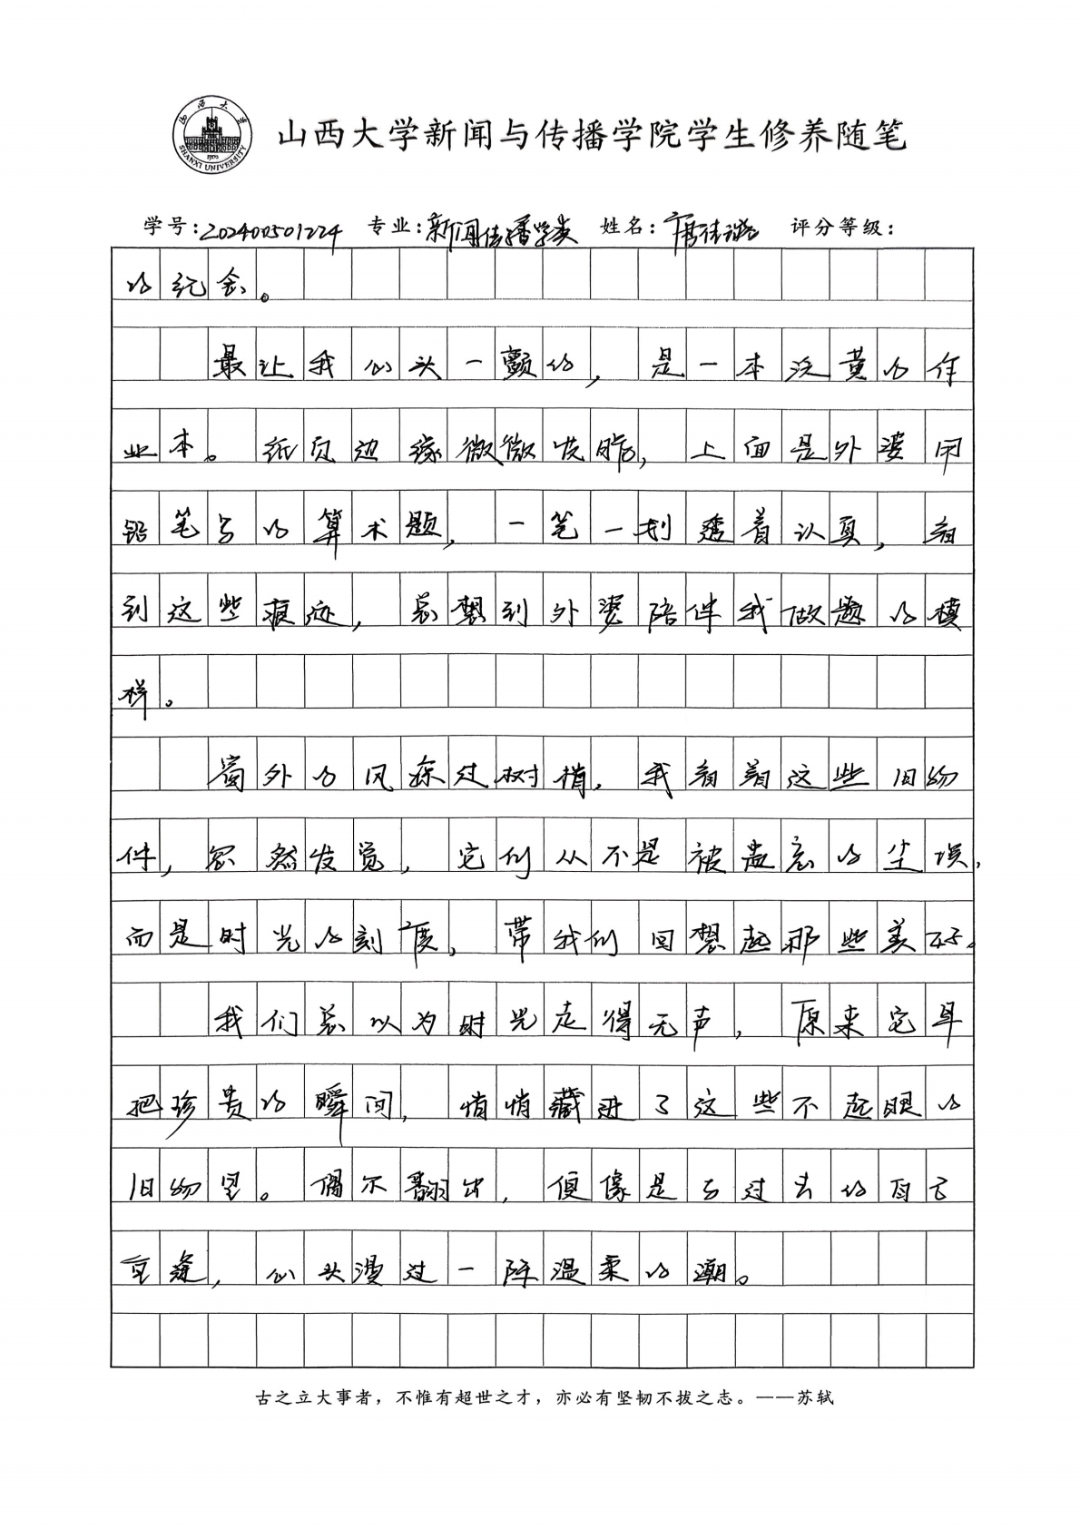 山西大学
SHANXI UNIVERSITY
1902
山西大学新闻与传播学院学生修养随笔
学号:202400501224 专业:新闻传播学类 姓名: 评分等级:
的纪念。
最让我心头一颤的，是一本泛黄的作
业本。纸页边缘微微发脆，上面是外婆用
铅笔写的算术题，一笔一划透着认真，看
到这些痕迹，总想到外婆陪伴我做题的模
样。
窗外的风掠过树梢，我看着这些旧物
件，忽然发觉，它们从不是被遗忘的尘埃，
而是时光的刻度，带我们回想起那些美好。
我们总以为时光走得无声，原来它早
把珍贵的瞬间，悄悄藏进了这些不起眼的
旧物里。偶尔翻出，便像是与过去的自己
重逢，心头漫过一阵温柔的潮。
古之立大事者，不惟有超世之才，亦必有坚韧不拔之志。——苏轼